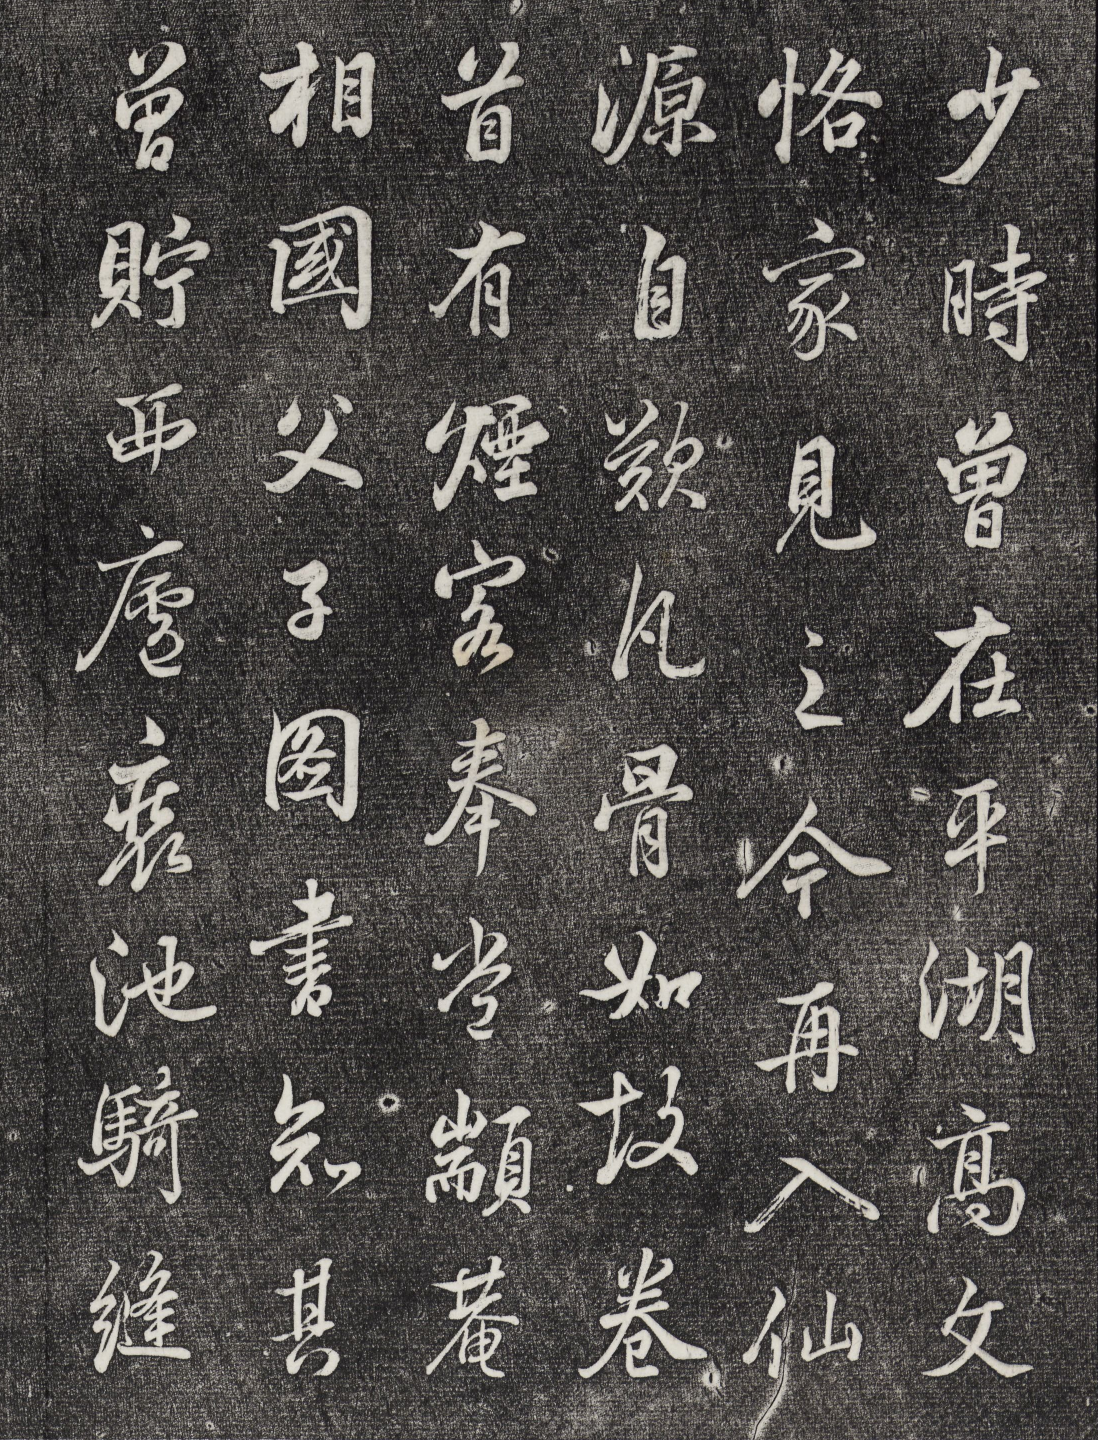 少時曾在平湖高文
恪家見之今再入仙
源自歎凡骨如故卷
首有煙客奉常顓菴
相國父子图書知其
曾貯西廬裏池騎縫